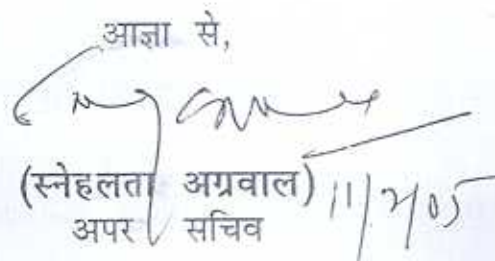 आज्ञा से,
(स्नेहलता अग्रवाल) 11/2/05
अपर सचिव